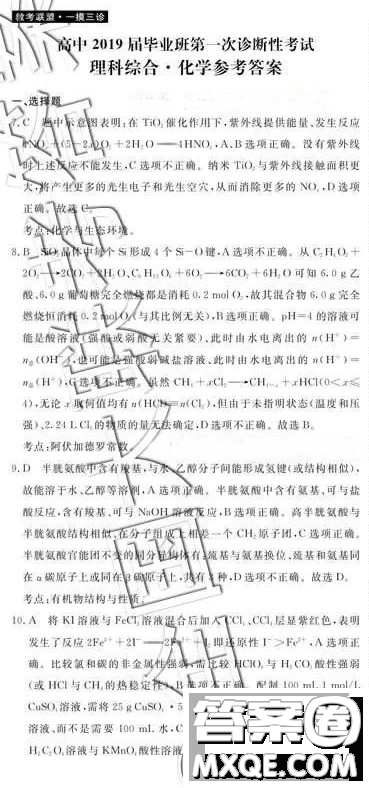 教考联盟·一摸三诊
高中 2019 届毕业班第一次诊断性考试
理科综合·化学参考答案
一、选择题
7. C 题中示意图表明:在 TiO₂ 催化作用下,紫外线提供能量、发生反应
4NO + (5-2x)O₂ + 2H₂O === 4HNO₃,A、B 选项正确。没有紫外线
时上述反应不能发生,C 选项不正确。纳米 TiO₂ 与紫外线接触面积更
大,将产生更多的光生电子和光生空穴,从而消除更多的 NOₓ,D 选项
正确。故选 C。
考点:化学与生态环境。
8. B SiO₂ 晶体中每个 Si 形成 4 个 Si—O 键,A 选项不正确。从 C₂H₄O₂ +
2O₂ → 2CO₂ + 2H₂O、C₆H₁₂O₆ + 6O₂ → 6CO₂ + 6H₂O 可知 6.0 g 乙
酸、6.0 g 葡萄糖完全燃烧都是消耗 0.2 mol O₂,故其混合物 6.0 g 完全
燃烧恒消耗 0.2 mol O₂(与其比例无关),B 选项正确。pH=4 的溶液可
能是酸溶液(强酸或弱酸无关紧要)、此时由水电离出的 n(H⁺)=
(OH⁻),也可能是强酸弱碱盐溶液、此时由水电离出的 n(H⁺)=
(H⁺),C 选项不正确。虽然 CH₄ + xCl₂ → CH₄₋ₓ + xHCl(0<x≤
4),无论 x 取何值均有 n(HCl)=n(Cl₂),但由于未指明状态(温度和压
强)、2.24 L Cl₂ 的物质的量无法确定,D 选项不正确。故选 B。
考点:阿伏加德罗常数。
9. D 半胱氨酸中含有羧基,与水、乙醇分子间能形成氢键(或结构相似),
故能溶于水、乙醇等溶剂,A 选项正确。半胱氨酸中含有氨基、可与盐
酸反应,含有羧基、可与 NaOH 溶液反应,B 选项正确。高半胱氨酸与
半胱氨酸结构相似、在分子组成上相差一个 CH₂ 原子团,C 选项正确。
半胱氨酸官能团不变的同分异构体有:巯基与氨基换位、巯基和氨基同
在 α 碳原子上或同在 β 碳原子上,共有 3 种,D 选项不正确。故选 D。
考点:有机物结构与性质。
10. A 将 KI 溶液与 FeCl₃ 溶液混合后加入 CCl₄、CCl₄ 层显紫红色,表明
发生了反应 2Fe³⁺ + 2I⁻ === 2Fe²⁺ + I₂,即还原性 I⁻ > Fe²⁺,A 选项正
确。比较氯和碳的非金属性强弱,需比较 HClO₄ 与 H₂CO₃ 酸性强弱
(或 HCl 与 CH₄ 的热稳定性),B 选项不正确。配制 100 mL 1 mol/L
CuSO₄ 溶液,需将 25 g CuSO₄·5
溶液、而不是需要 100 mL 水,C
H₂C₂O₄ 溶液与 KMnO₄ 酸性溶液
答案圈
MXQE.COM